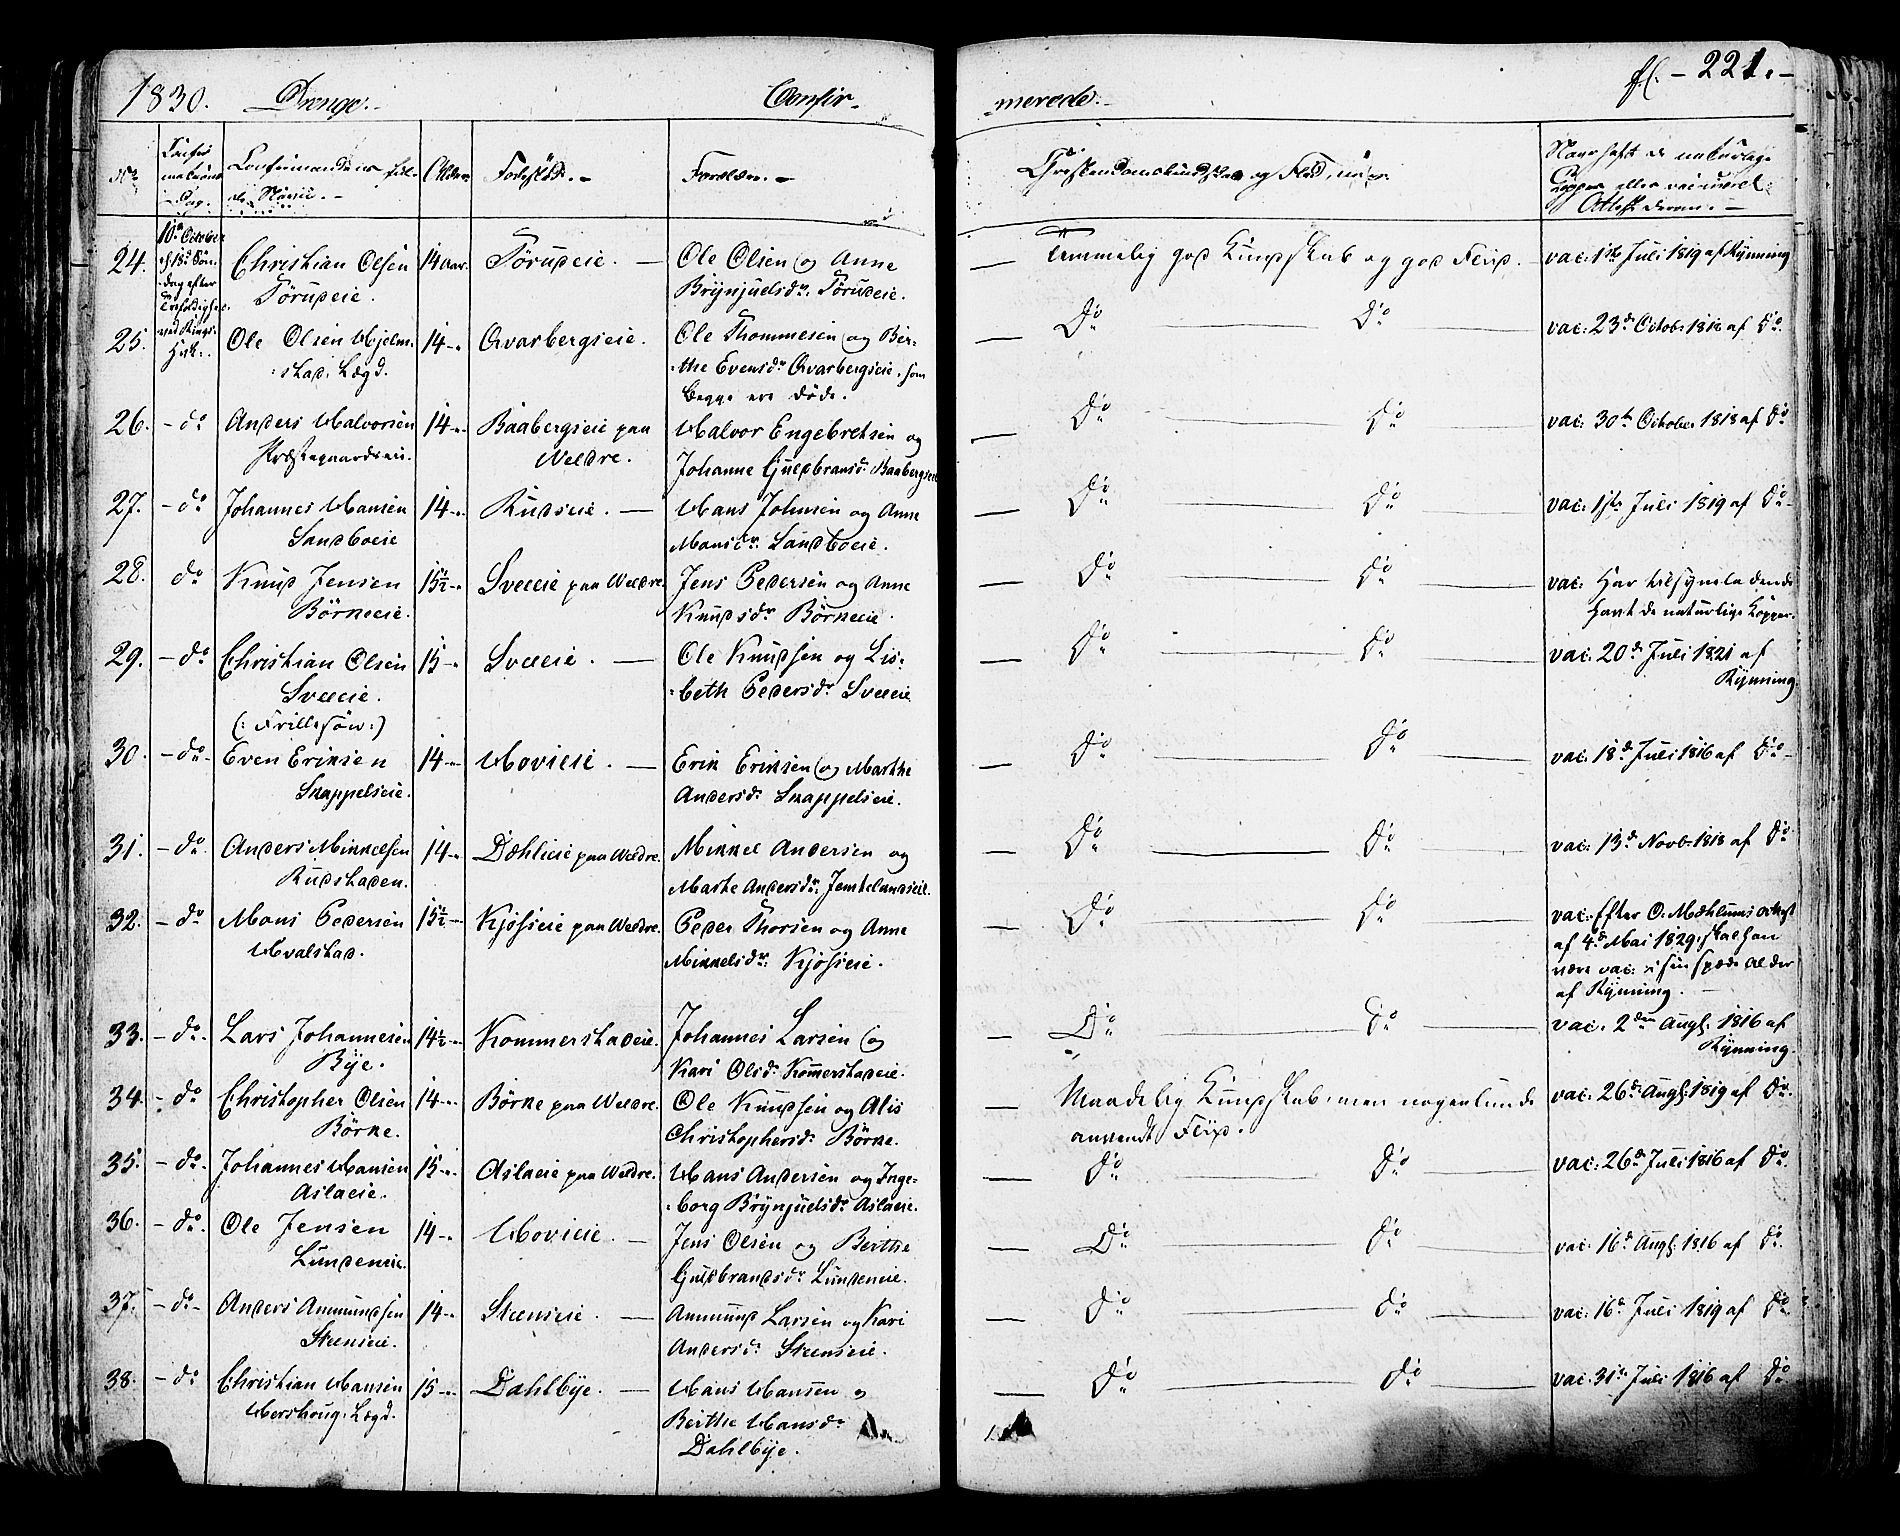 1830. Drenge. Confir-
merede. fl. - 221. -
No
Confir
mations
Dag.
Confirmandens ful-
de Navne. -
Alder.
Fødested. -
Forældre. -
Christendomskundskab og Flid,
Hvorhaft de naturlige
Kopper eller vaccineret
Attest derom. -
24.
10de October
18de Søn-
dag efter
Trefoldighed
ved Rings-
Christian Olsen
Töruseie.
14 Aar.
Töruseie. -
Ole Olsen og Anne
Brÿnjuelsdr. Töruseie.
Temmelig god Kundskab og god Flid.
vac. 1ste Juli 1819 af Rÿnning
25.
Ole Olsen Hjelm-
stad. Lægd.
14 -
Qvarbergseie.
Ole Thommesen og Ber-
the Evensdr. Qvarbergseie, som
begge ere døde.
Do Do
vac: 23de Octob. 1818 af Do
26. - do
Anders Halvorsen
Præstegaardseie.
14 -
Baabergseie paa
Veldre.
Halvor Engebretsen og
Johanne Guldbransdr. Baabergseie
Do Do
vac: 30te October 1818 af Do
27. - do
Johannes Hansen
Sandboeie
14 -
Rudseie. -
Hans Johnsen og Anne
Hansdr. Sandboeie.
Do Do
vac: 1ste Juli 1819 af Do
28. do
Knud Jensen
Börkeeie.
15½ -
Sveeeie paa Veldre.
Jens Pedersen og Anne
Knudsdr. Börkeeie.
Do Do
vac: Har tilsyneladende
havt de naturlige Kopper.
29. - do
Christian Olsen
Sveeeie.
(: Frillesøn :)
15 -
Sveeeie. -
Ole Knudsen og Lis-
beth Pedersdr. Sveeeie
Do Do
vac. 20de Juli 1821 af
Rÿnning
30. - do
Even Eriksen
Skappelseie.
14 -
Hovieie. -
Erik Eriksen og Marthe
Andersdr. Skappelseie.
Do Do
vac: 18de Juli 1816 af Do
31. - do
Anders Mikkelsen
Rudstaden.
14 -
Dæhlieie paa Veldre.
Mikkel Andersen og
Marte Andersdr. Jemtelandseie.
Do Do
vac: 13de Novb. 1818 af Do
32. - do
Mons Pedersen
Hvalstad.
15½ -
Kjosseie paa Veldre.
Peder Thorsen og Anne
Mikkelsdr. Kjosseie.
Do Do
vac: Efter O. Mæhlums attest
af 4de Mai 1829, skal han
være vac: i sin spæde Alder
af Rÿnning.
33. - do
Lars Johannesen
Bÿe.
14½ -
Kommerstadeie.
Johannes Larsen og
Kari Olsdr. Komerstadeie.
Do Do
vac. 2den Augst. 1816 af
Rÿnning.
34. - do
Christopher Olsen
Börke.
14 -
Börke paa Veldre.
Ole Knudsen og Alis
Christophersdr. Börke.
Maadelig Kundskab, men nogenlunde
anvendt Flid.
vac: 26de Augst. 1819 af Do
35. - do
Johannes Hansen
Aslaeie.
15 -
Aslaeie paa Veldre.
Hans Andersen og Inge-
borg Brÿnjuelsdr. Aslaeie.
Do Do
vac: 26de Juli 1816 af Do
36. - do
Ole Jensen
Lundeneie.
14 -
Hovieie. -
Jens Olsen og Berthe
Guldbrandsdr. Lundeneie.
Do Do
vac: 16de Augst. 1816 af Do
37. - do
Anders Ammundsen
Steenseie.
14 -
Steenseie. -
Ammund Larsen og Kari
Andersdr. Steenseie.
Do Do
vac: 16de Juli 1819 af Do
38. - do
Christian Hansen
Hershoug. Lægd.
15 -
Dahlbÿe. -
Hans Hansen og
Berthe Hansdr.
Dahlbÿe.
Do Do
vac: 31te Juli 1816 af Do